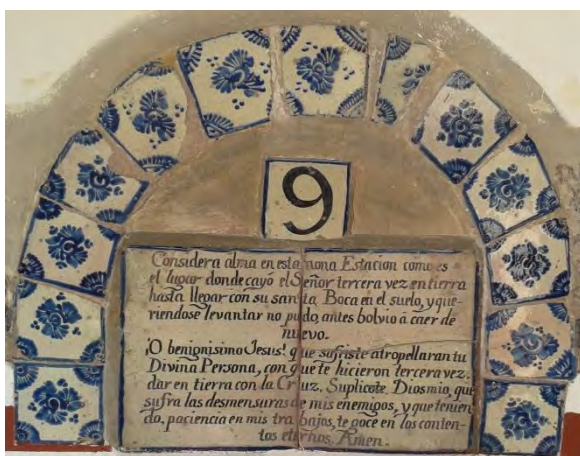 9
Considera alma en esta nona Estacion como es
el lugar donde cayó el Señor tercera vez en tierra
hasta llegar con su santa Boca en el suelo, y que-
riendose levantar no pudo, antes bolvio á caer de
nuevo.
¡O benignisimo Jesus! que sufriste atropellaran tu
Divina Persona, con que te hicieron tercera vez
dar en tierra con la Cruz. Suplicote, Dios mio, que
sufra las desmensuras de mis enemigos, y que tenien-
do, paciencia en mis trabajos, te goce en los conten-
tos eternos. Amen.